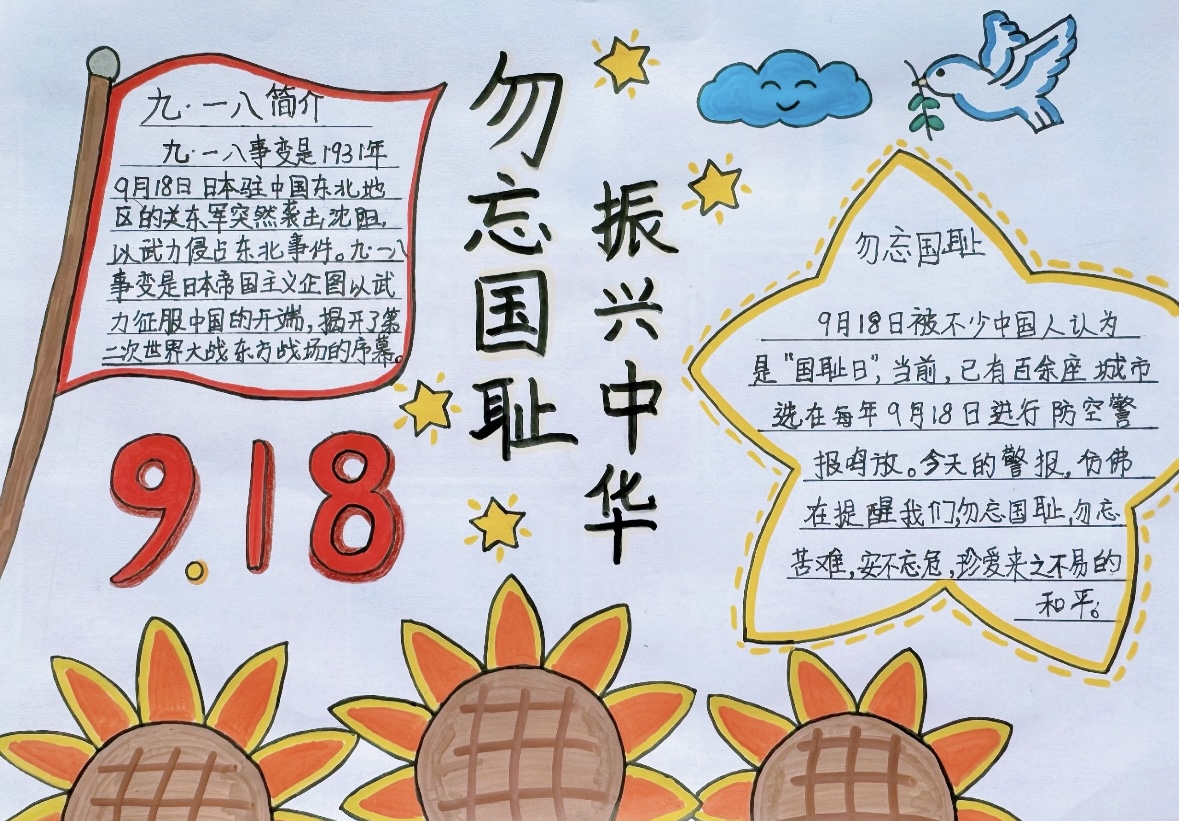 九·一八简介
九·一八事变是1931年
9月18日日本驻中国东北地
区的关东军突然袭击沈阳,
以武力侵占东北事件。九·一八
事变是日本帝国主义企图以武
力征服中国的开端,揭开了第
二次世界大战东方战场的序幕。
9.18
勿忘国耻
振兴中华
勿忘国耻
9月18日被不少中国人认为
是“国耻日”,当前,已有百余座城市
选在每年9月18日进行防空警
报鸣放。今天的警报,仿佛
在提醒我们,勿忘国耻,勿忘
苦难,安不忘危,珍爱来之不易的
和平。